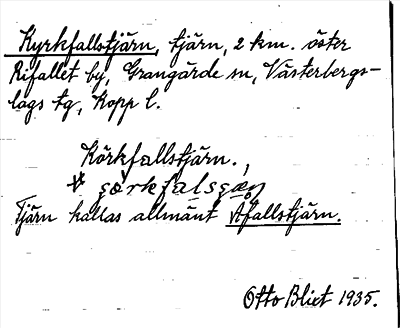 Kyrkfallstjärn, tjärn, 2 km. öster
Rifallet by, Grangärde sn, Västerbergs-
lags tg, Kopp l.
Körkfallstjärn.,
Tjärn kallas allmänt Åfallstjärn.
Otto Blixt 1935.